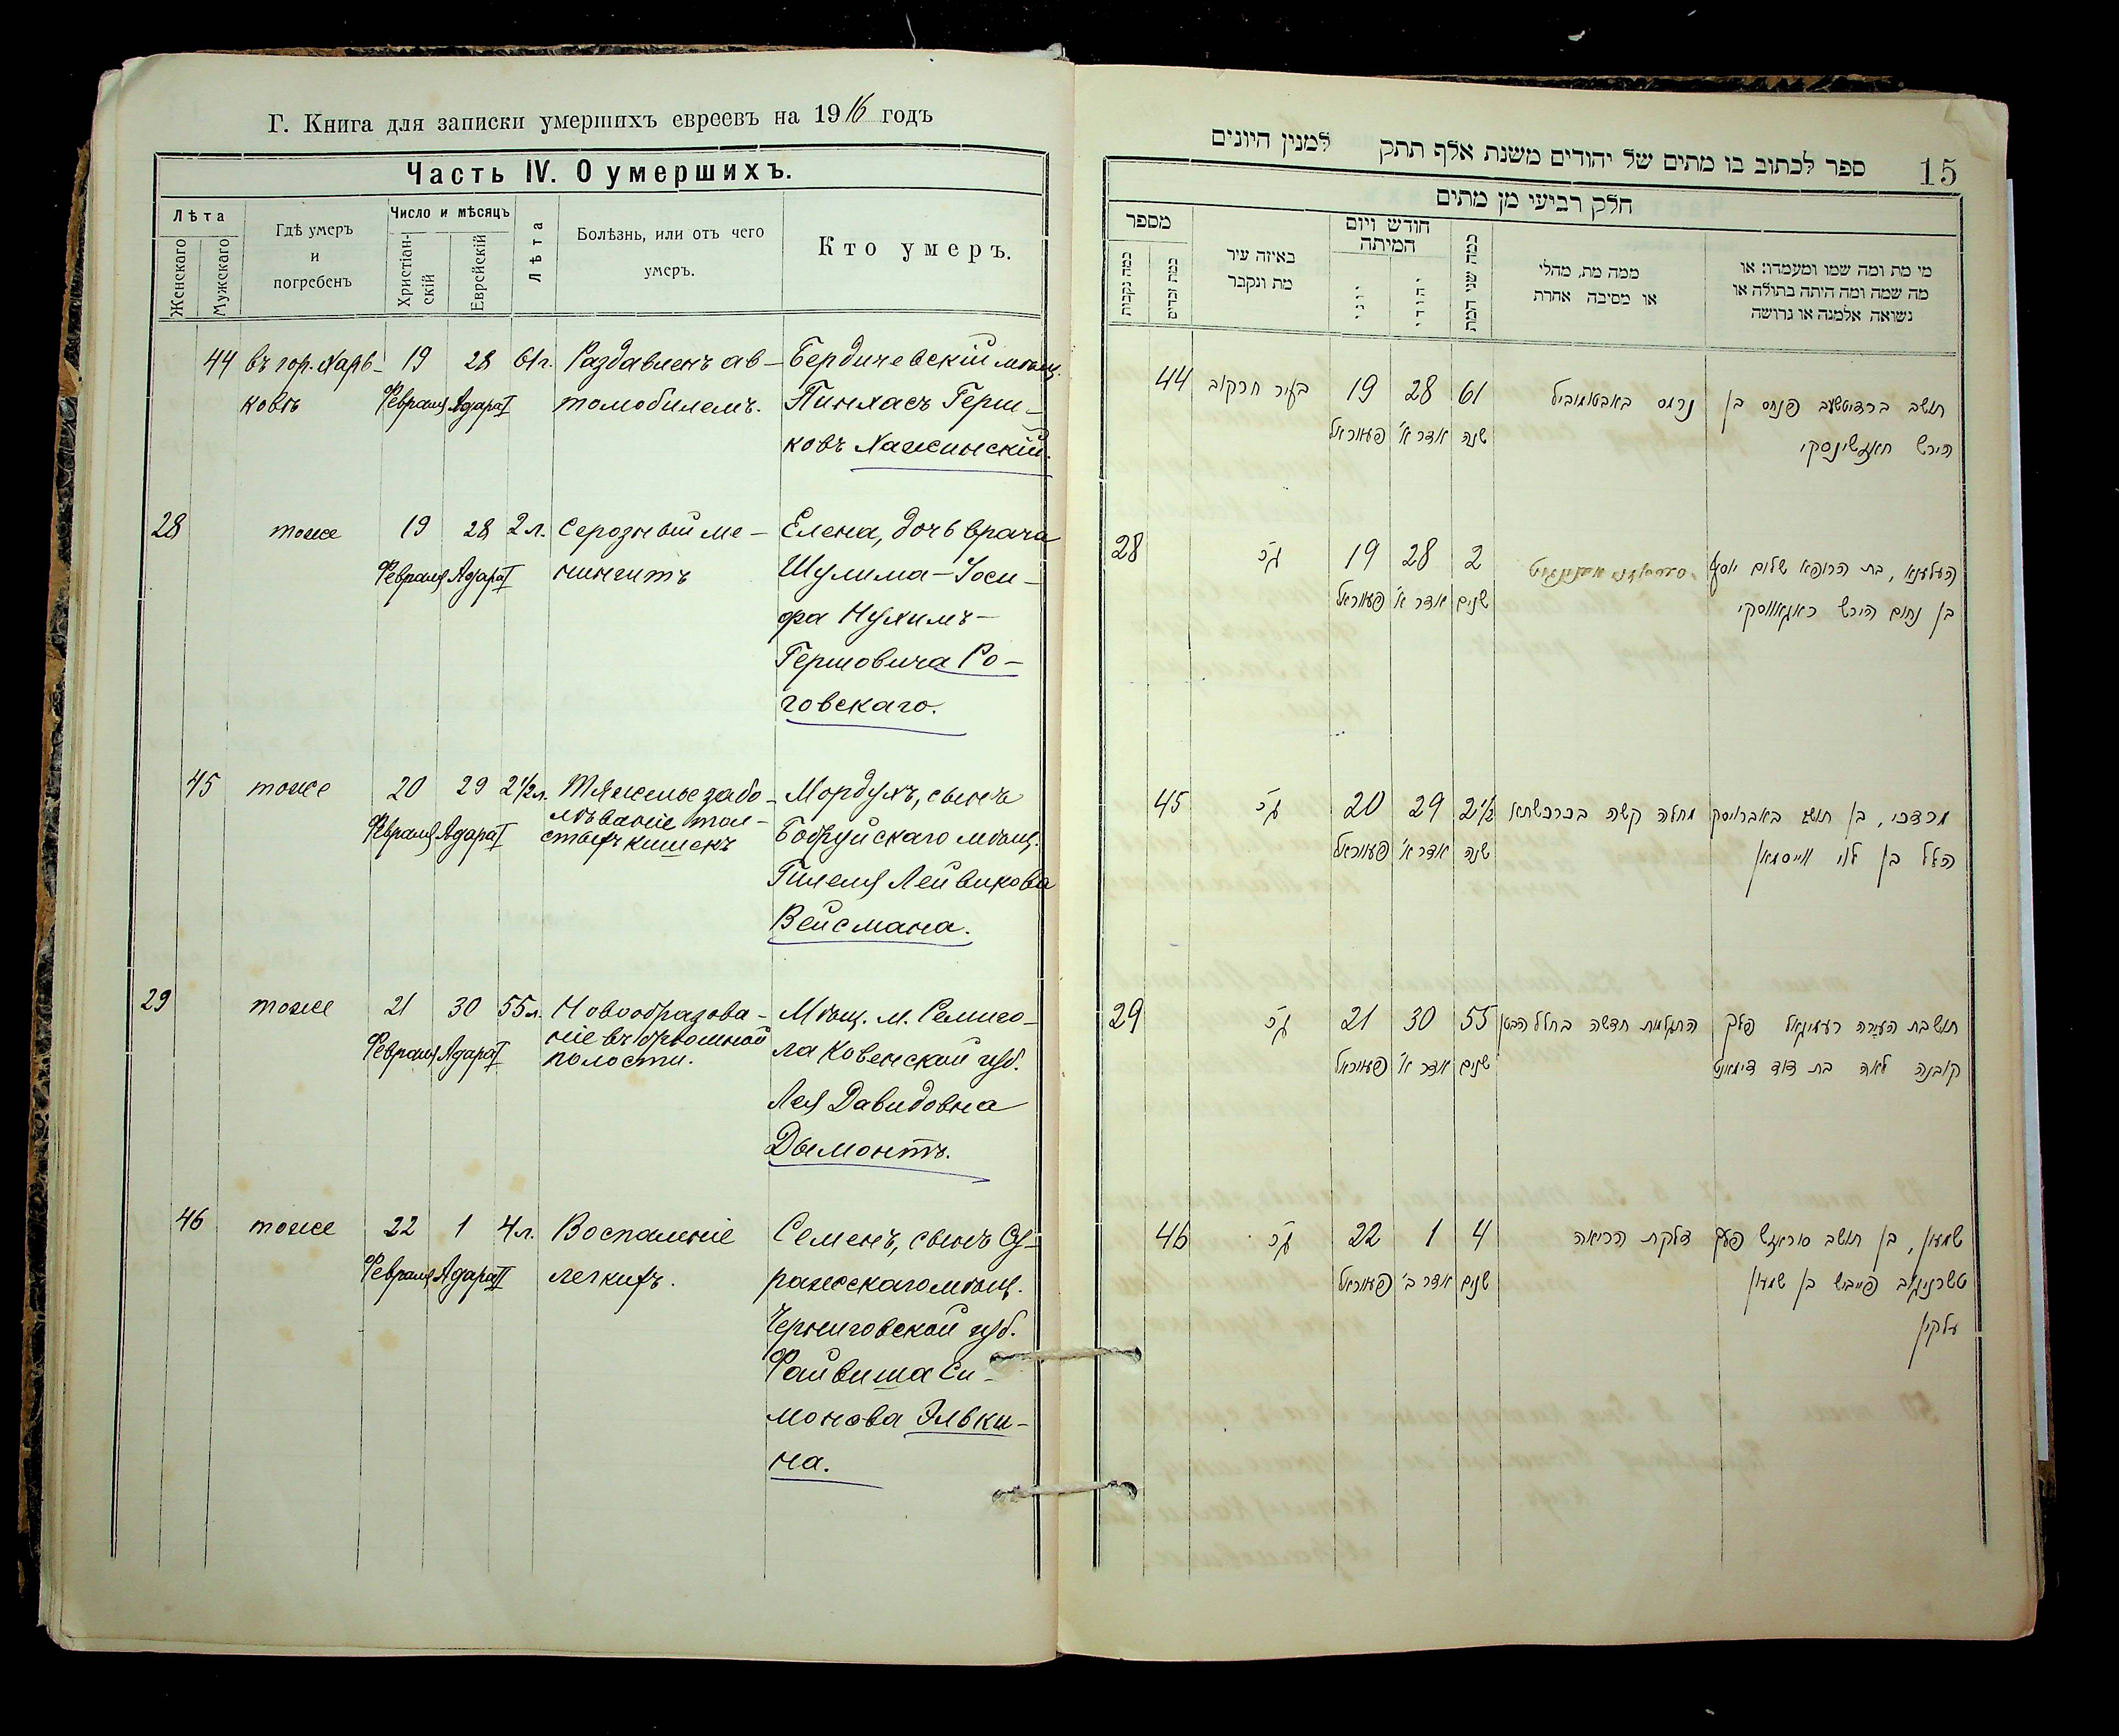 Г. Книга для записки умершихъ евреевъ на 1916 годъ
Часть IV. О умершихъ.
Лѣта
Женскаго
Мужскаго
Гдѣ умеръ
и
погребенъ
Число и мѣсяцъ
Христіан-
скій
Еврейскій
Лѣта
Болѣзнь, или отъ чего
умеръ.
Кто умеръ.
44 въ гор. Харь- 19 28 61г. Раздавленъ ав- Бердичевскій мѣщ.
ковѣ Февраля Адара I томобилемъ. Пинхасъ Герш-
ковъ Хажинскій.
28 тоже 19 28 2л. Серозный ме- Елена, дочь врача
Февраля Адара I нингитъ Шулима-Іоси-
фа Нухимъ-
Гершовича Ро-
говскаго.
45 тоже 20 29 2½л. Тяжелое забо- Мордухъ, сынъ
лѣваніе тол-
Февраля Адара I стыхъ кишекъ Бобруйскаго мѣщ.
Гилеля Лейвикова
Вейсмана.
29 тоже 21 30 55л. Новообразова- Мѣщ. м. Ремиго-
ніе въ брюшной
Февраля Адара I полости. ла Ковенской губ.
Лея Давидовна
Дымонтъ.
46 тоже 22 1 4л. Воспаленіе Семенъ, сынъ Су-
Февраля Адара II легкихъ. ражскаго мѣщ.
Черниговской губ.
Файвиша Си-
монова Элькі-
на.
15
ספר לכתוב בו מתים של יהודים משנת אלף תתק למנין היונים
חלק רביעי מן מתים
מספר
כמה נקבות
כמה זכרים
באיזה עיר
מת ונקבר
חודש ויום
המיתה
יוני
יהודי
כמה שני המת
ממה מת, מחלי
או מסיבה אחרת
מי מת ומה שמו ומעמדו: או
מה שמה ומה היתה בתולה או
נשואה אלמנה או גרושה
44 בעיר חרקוב 19 28 61 נרמס באבטומוביל תושב ברדיטשעב פנחס בן
פעווראל אדר א' שנה הירש חאזשינסקי
28 19 28 2 העלענא, בת הרופא שלום יוסף
פעווראל אדר א' שנים בן נחום הירש ראגאווסקי
45 20 29 2½ מחלה קשה בכרכשתא מרדכי, בן תושב באברויסק
פעווראל אדר א' שנה הלל בן לוי ווייסמאן
29 21 30 55 התגלמות חדשה בחלל הבטן תושבת העירה רעמיגאל פלך
פעווראל אדר א' שנים קובנה לאה בת דוד דימאנט
46 22 1 4 דלקת הריאה שמעון, בן תושב סוראזש פלך
פעווראל אדר ב' שנים טשרניגוב פייביש בן שמעון
עלקין